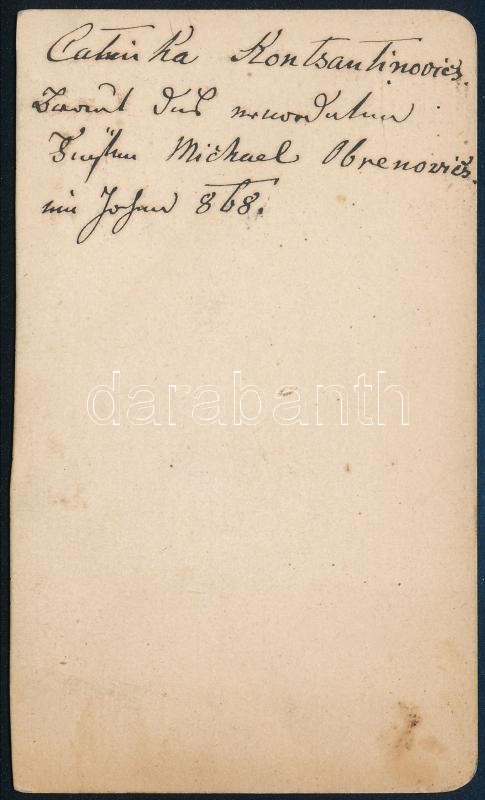 Catinka Kontsantinovics.
Braut des ermordeten
Fürsten Michael Obrenovics.
im Jahre 868.
darabanth